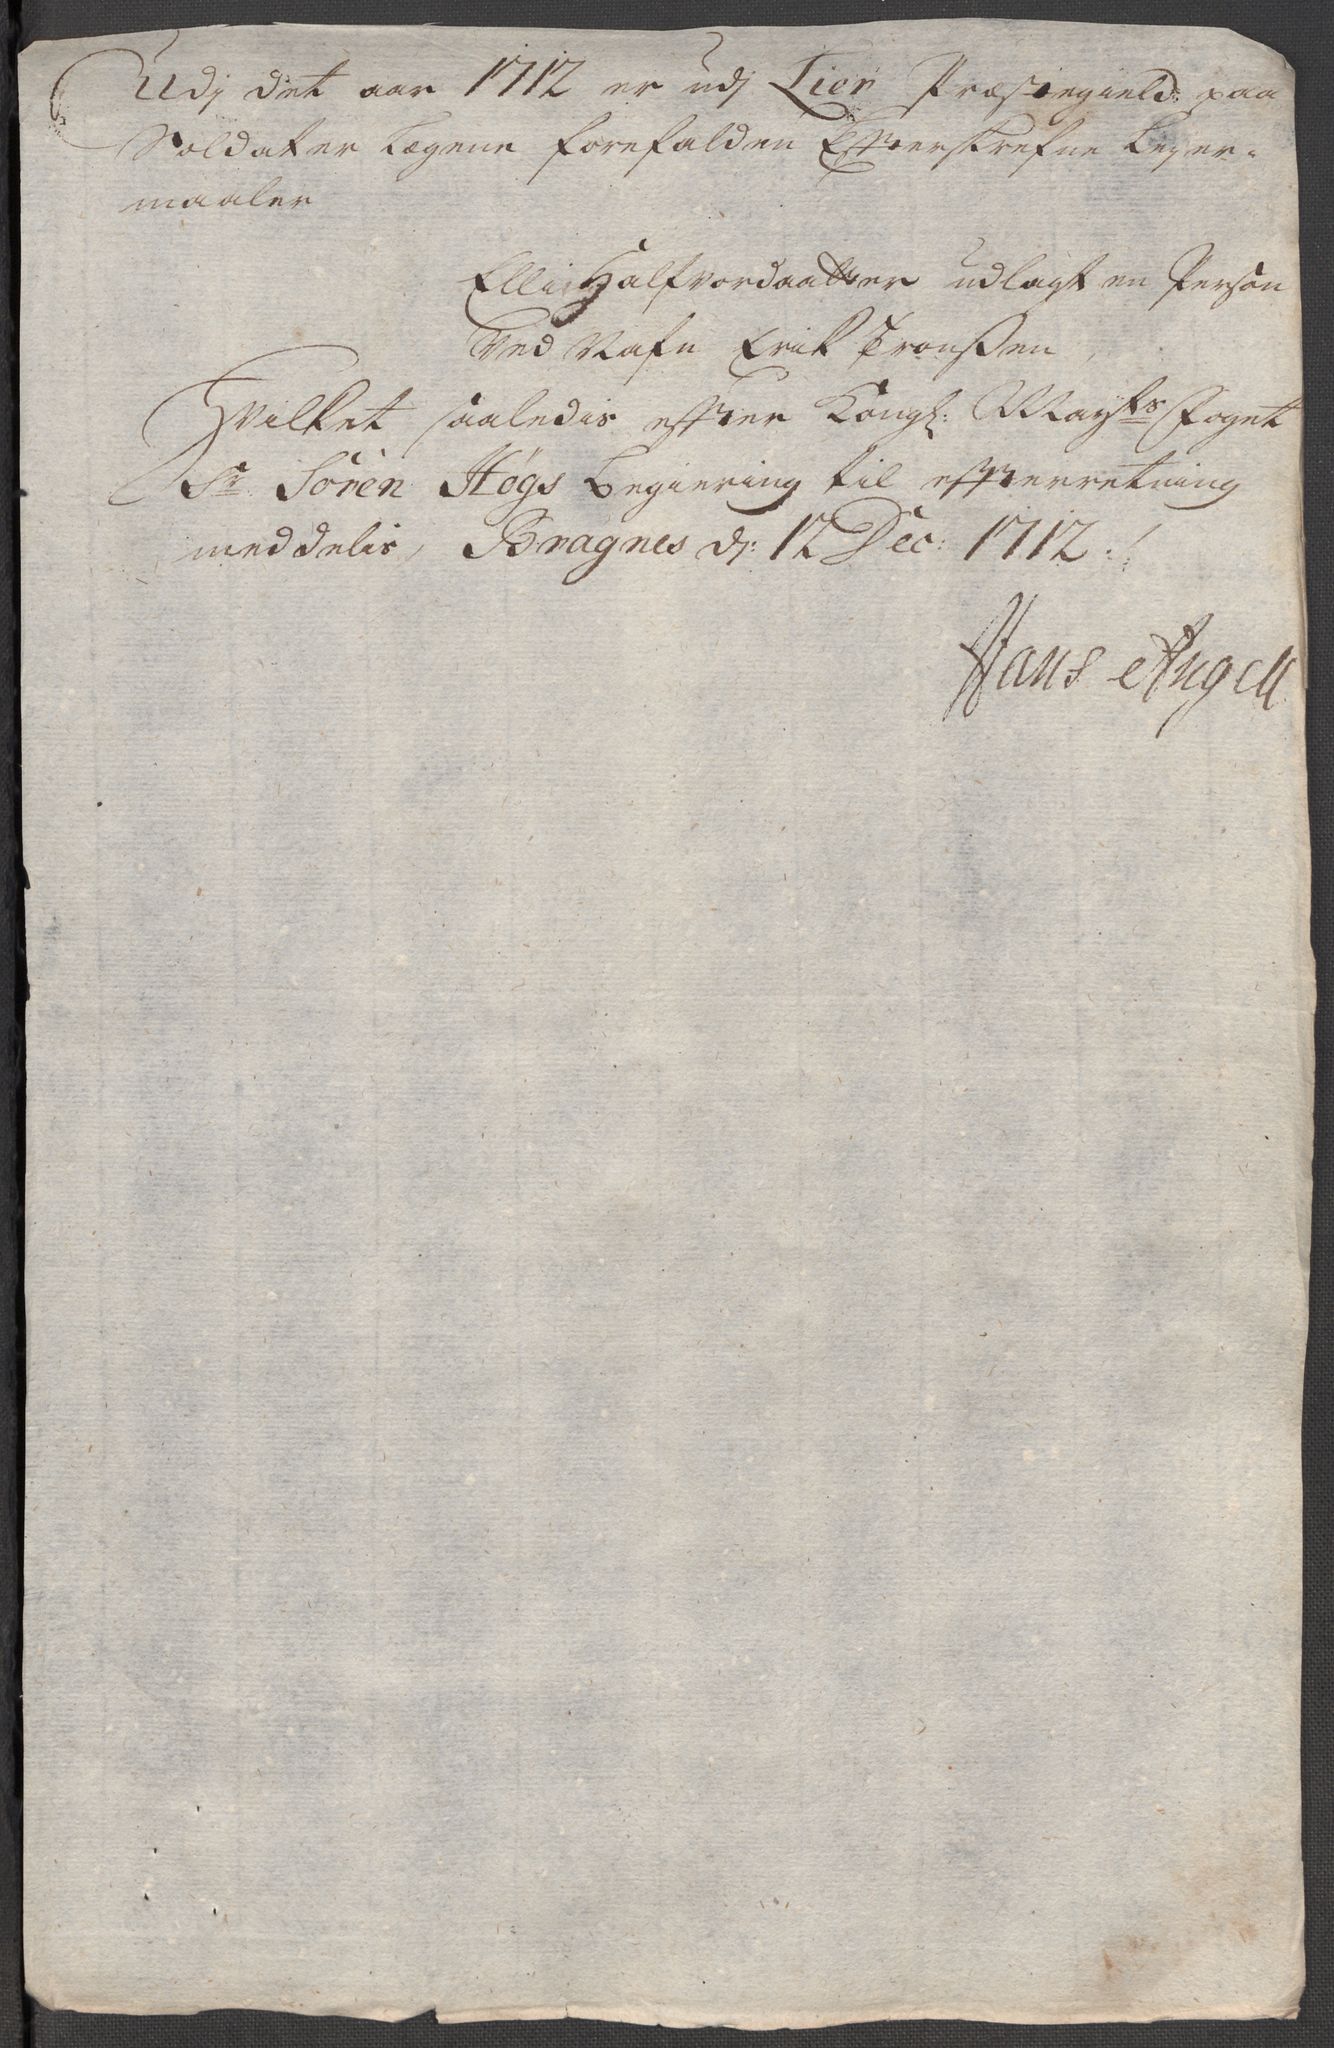 Udj det aar 1712 er udj Lier Præstegield: paa
Soldater Lægene forefalden Efterskrefne Leyer-
maaler
Elli Halfvordaatter udlagt en Person
Ved Nafn Erik
Hvilket saaledis efter Kongl: Mayts Foget
Sr Sören Högs begiering til efterretning
meddelis, Bragnes d: 12 Dec: 1712 ./
Hans Angell